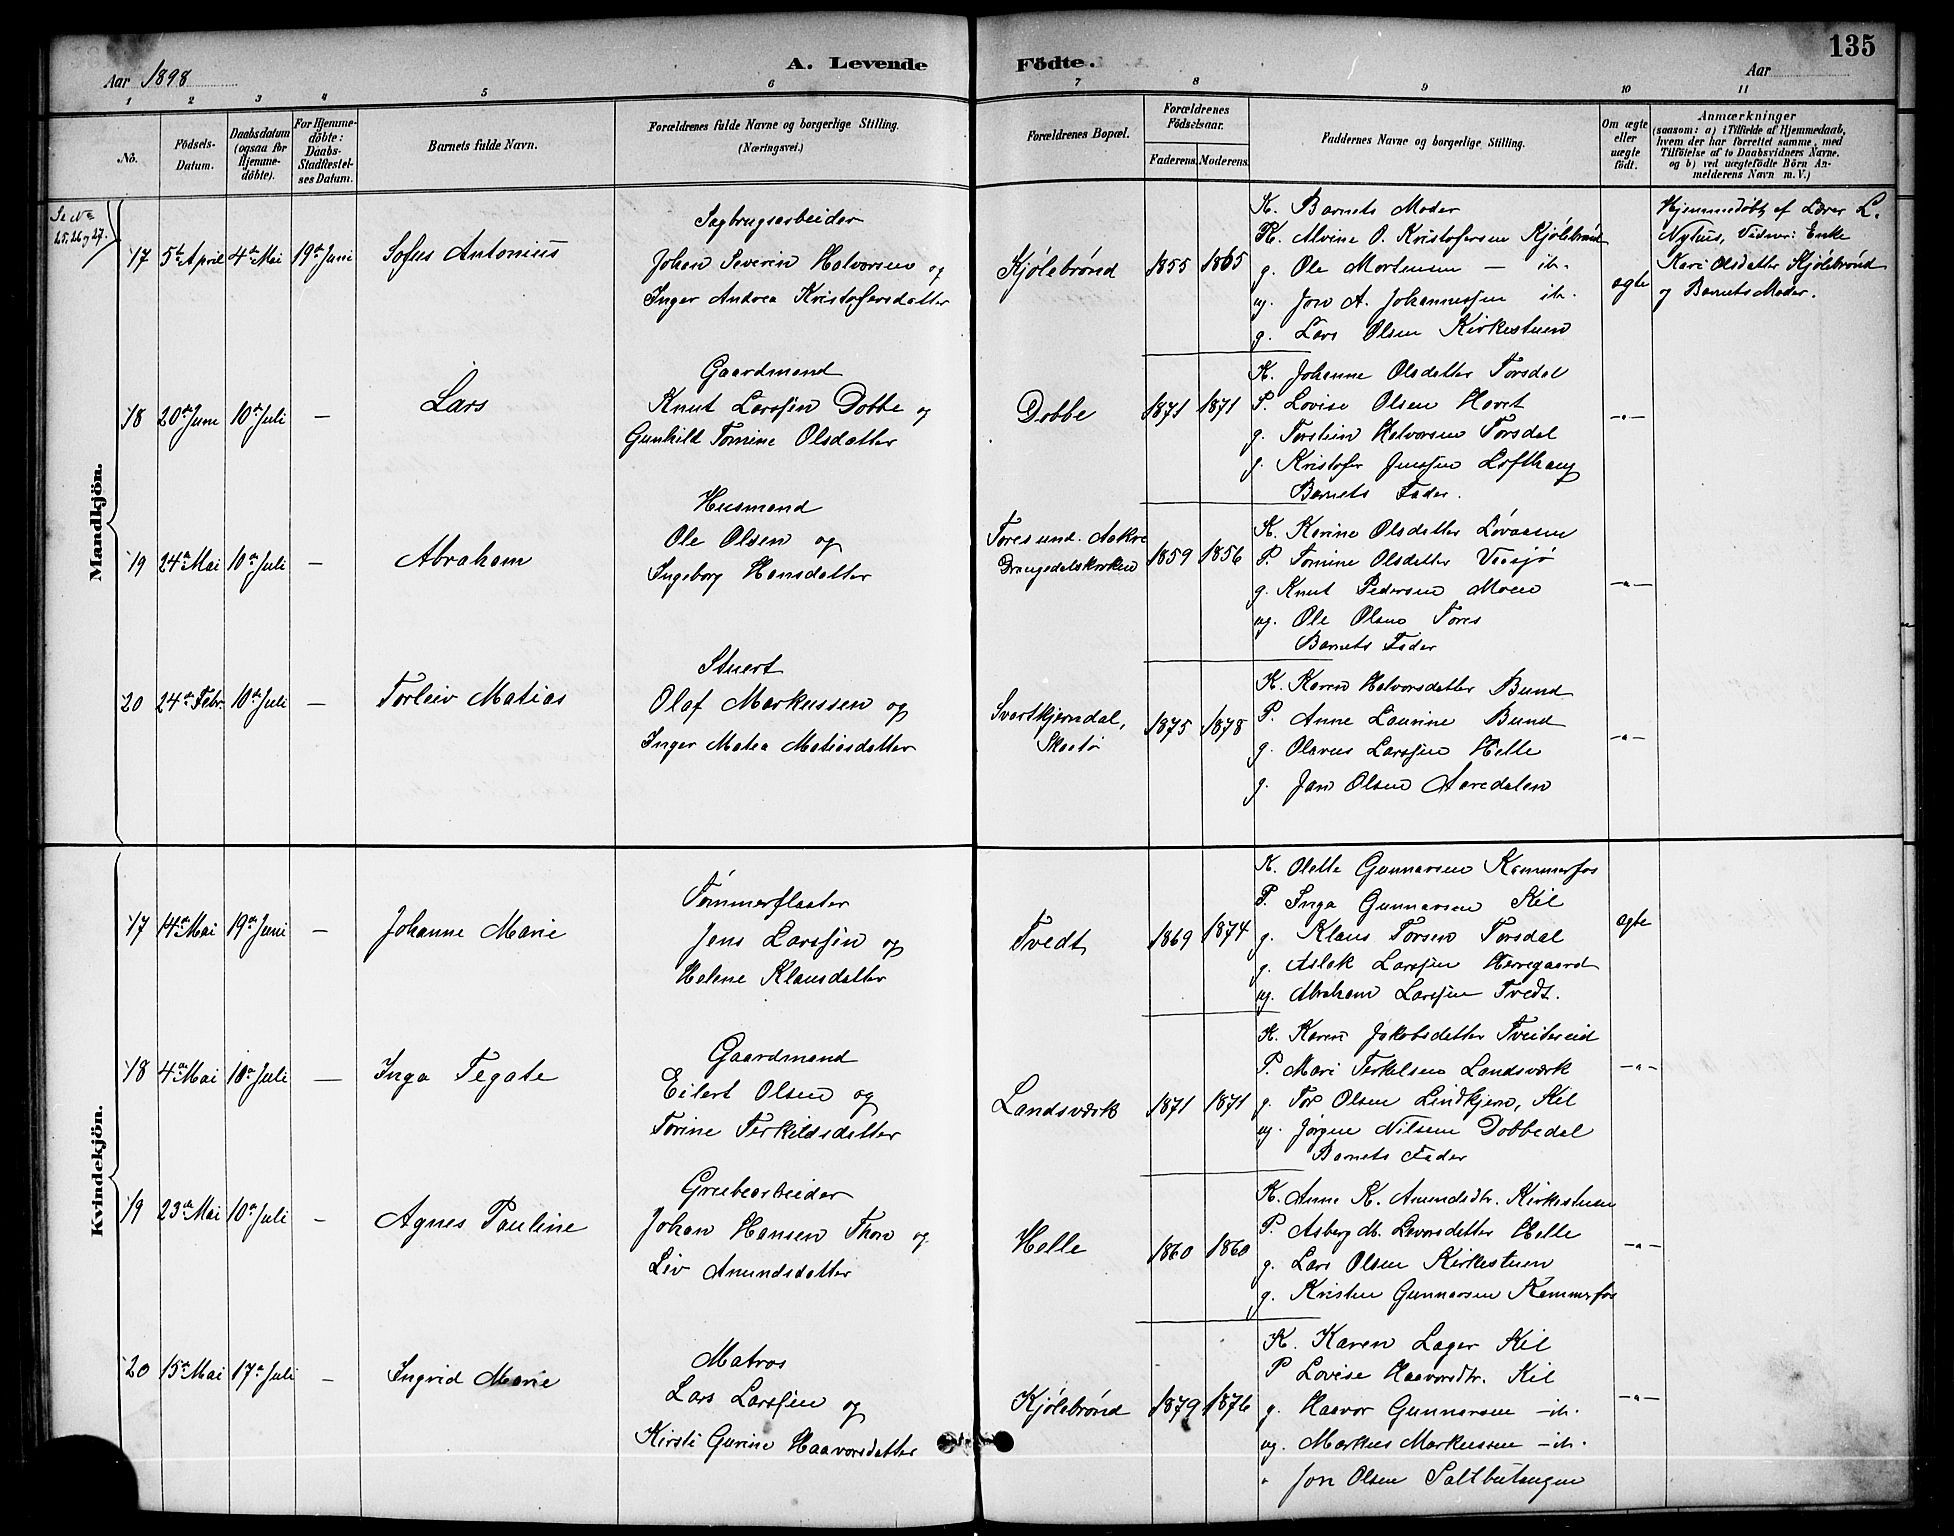 135
Aar 1898
A. Levende Födte.
Aar
1 2 3 4 5 6 7 8 9 10 11
No.
Födsels-Datum.
Daabsdatum (ogsaa for Hjemme-döbte).
For Hjemme-döbte: Daabs-Stadfæstel-ses Datum.
Barnets fulde Navn.
Forældrenes fulde Navne og borgerlige Stilling. (Næringsvei.)
Forældrenes Bopæl.
Forældrenes Födselsaar.
Faderens. Moderens.
Faddernes Navne og borgerlige Stilling.
Om ægte eller uægte födt.
Anmærkninger
(saasom: a) i Tilfælde af Hjemmedaab, hvem der har forrettet samme, med Tilföielse af to Daabsvidners Navne. og b) ved uægtefödte Börn An-melderens Navn m. V.)
Mandkjön.
Se No
25, 26 og 27.
17 5te April 4de Mai 19de Juni
Sofus Antonius
Sagbrugsarbeider
Johan Severin Halvorsen og
Inger Andrea Kristofersdatter
Kjølebrønd
1855 1865
K. Barnets Moder
K. Alvine O. Kristofersen Kjølebrønd
g. Ole Mortensen — ib.
ug. Jon A. Johannessen ib.
g. Lars Olsen Kirkestuen
ægte
Hjemmedøbt af Lærer L.
Nylus, Vidner: Enke
Kari Olsdatter Kjølebrønd
og Barnets Moder.
18 20de Juni 10de Juli —
Lars
Gaardmand
Knut Larssen Dobbe og
Gunhild Tomine Olsdatter
Dobbe
1871 1871
K. Johanne Olsdatter Torsdal
P. Lovise Olsen Havet
g. Torstein Halvorsen Torsdal
g. Kristofer Jenssen Lofthaug
Barnets Fader.
—"—
19 24de Mai 10de Juli —
Abraham
Husmand
Ole Olsen og
Ingeborg Hansdatter
Tores und. Aakre
Drangedalskroken
1859 1856
K. Karine Olsdatter Løvaasen
P. Tomine Olsdatter Veesjø
g. Knut Pedersen Moen
ug. Ole Olsen Tores
Barnets Fader
—"—
20 24de Febr. 10de Juli —
Torleiv Matias
Stuert
Olaf Markussen og
Inger Matea Matiasdatter
Svartkjerndal,
Skaatø
1875 1878
K. Karen Halvorsdatter Bund
P. Anne Laurine Bund
g. Olavus Larssen Helle
g. Jan Olsen Aaredalen
—"—
Kvindekjön.
17 14de Mai 19de Juni —
Johanne Marie
Tømmerfløater
Jens Larssen og
Helene Klausdatter
Tvedt
1869 1874
K. Olette Gunnarsen Kammerfos
P. Inga Gunnarsen Kil
g. Klaus Torsen Torsdal
g. Aslak Larssen Herregaard
ug. Abraham Larssen Tvedt.
ægte
18 4de Mai 10de Juli —
Inga Tegate
Gaardmand
Eilert Olsen og
Torine Terkildsdatter
Landsværk
1871 1871
K. Karen Jakobsdatter Tveitereid
P. Mari Terkelsen Landsværk
g. Tor Olsen Lindkjern, Kil
ug. Jørgen Nilsen Dobbedal
Barnets Fader
—"—
19 23de Mai 10de Juli —
Agnes Pauline
Grubearbeider
Johan Hansen Thon og
Liv Amundsdatter
Helle
1860 1860
K. Anne K. Amundsdtr. Kirkestuen
P. Asberg M. Levorsdatter Helle
g. Lars Olsen Kirkestuen
g. Kristen Gunnarsen Kammerfos
—"—
20 15de Mai 17de Juli —
Ingrid Marie
Matros
Lars Larssen og
Kirsti Gurine Haavorsdatter
Kjølebrønd
1879 1876
K. Karen Lager Kil
P Lovise Haavorsdtr. Kil
g. Haavor Gunnarsen — ib.
ug. Markus Markussen — ib.
" Jon Olsen Saltbutangen
—"—